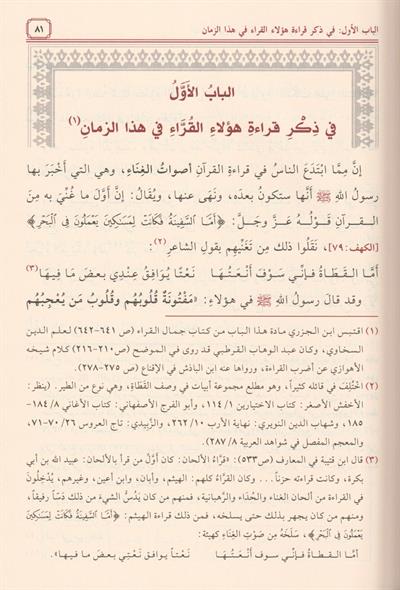 الباب الأول: في ذكر قراءة هؤلاء القراء في هذا الزمان
٨١
البابُ الأَوَّلُ
في ذِكْرِ قراءةِ هؤلاءِ القُرَّاءِ في هذا الزمانِ(١)
إنَّ مِمَّا ابْتَدَعَ الناسُ في قراءةِ القرآنِ أصواتُ الغِنَاءِ، وهي التي أَخْبَرَ بها
رسولُ اللهِ ﷺ أَنَّها ستكونُ بعدَه، ونَهَى عنها، ويُقَالُ: إنَّ أَوَّلَ ما غُنِّيَ به مِنَ
القـرآنِ قَوْلُـهُ عَزَّ وجَلَّ: ﴿أَمَّا ٱلسَّفِينَةُ فَكَانَتْ لِمَسَٰكِينَ يَعْمَلُونَ فِي ٱلْبَحْرِ﴾
[الكهف: ٧٩]، نَقَلُوا ذلك مِن تَغَنِّيهِم بقولِ الشاعرِ(٢):
أَمَّا القَطَاةُ فإنِّي سَوْفَ أَنْعَتُـهَا نَعْتًا يُوَافِقُ عِنْدِي بعضَ ما فِيهَا(٣)
وقد قال رسولُ اللهِ ﷺ في هؤلاءِ: «مَفْتُونَةٌ قُلُوبُهُم وقُلُوبُ مَن يُعْجِبُهُم
(١) اقتبس ابن الجزري مادة هذا الباب من كتاب جمال القراء (ص ٦٤١-٦٤٢) لعلم الدين
السخاوي، وكان عبد الوهاب القرطبي قد روى في الموضح (ص ٢١٠-٢١٦) كلام شيخه
الأهوازي عن أضرب القراءة، ورواها عنه ابن الباذش في الإقناع (ص ٢٧٥-٢٧٨).
(٢) اخْتُلِفَ في قائله كثيراً، وهو مطلع مجموعة أبيات في وصف القَطَاةِ، وهي نوع من الطير. (ينظر:
الأخفش الأصغر: كتاب الاختيارين ١/ ١١٤، وأبو الفرج الأصفهاني: كتاب الأغاني ٨/ ١٨٤-
١٨٥، وشهاب الدين النويري: نهاية الأرب ١٠/ ٢٦٢، والزَّبِيدي: تاج العروس ٢٦/ ٧٠-٧١،
والمعجم المفصل في شواهد العربية ٨/ ٢٨٧).
(٣) قال ابن قتيبة في المعارف (ص ٥٣٣): «قراءُ الألحان: كان أوَّل من قرأ بالألحان: عبيد الله بن أبي
بكرة، وكانت قراءته حزناً... وكان القرَّاءُ كلهم: الهيثم، وأبان، وابن أعين، وغيرهم، يُدْخِلُونَ
في القراءة من ألحان الغناء والحُدَاء والرهبانية، فمنهم من كان يَدُسُّ الشيءَ من ذلك دَسّاً رقيقاً،
ومنهم من كان يجهر بذلك حتى يسلخه، فمن ذلك قراءة الهيثم: ﴿أَمَّا ٱلسَّفِينَةُ فَكَانَتْ لِمَسَٰكِينَ
يَعْمَلُونَ فِي ٱلْبَحْرِ﴾، سَلَخَهُ من صَوْتِ الغِنَاءِ كهيئة:
أمَّا القَطَاةُ فَإِنِّي سوف أنْعَتُـهَا نَعْتاً يوافق نَعْتِي بعضَ ما فيها».